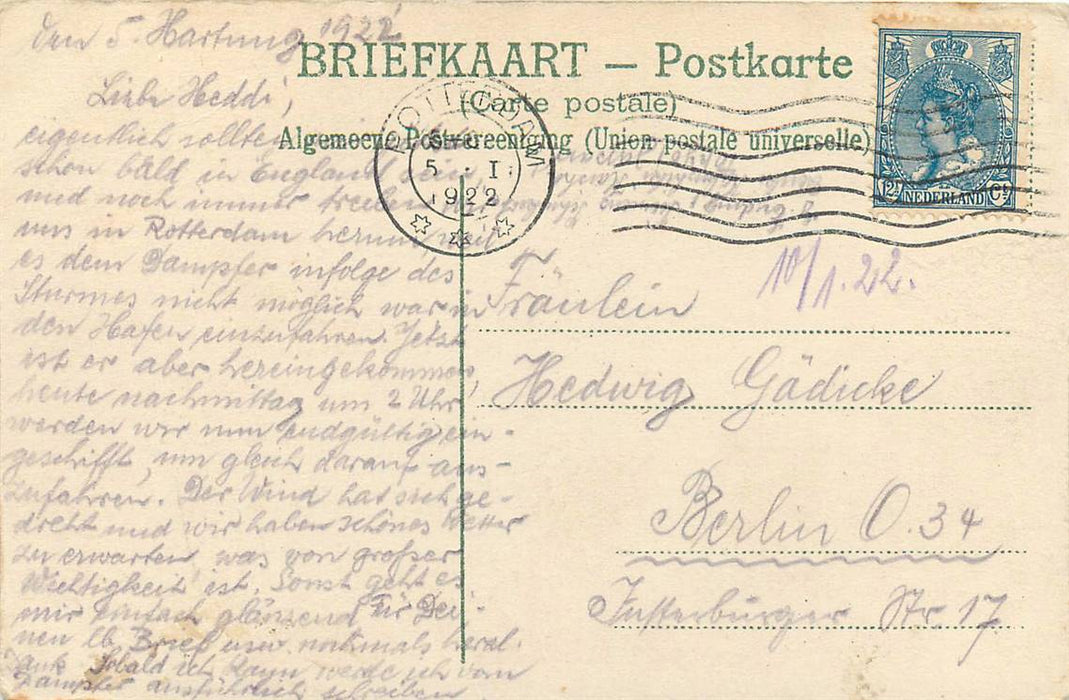 den 5. Hartung 1922
BRIEFKAART – Postkarte
(Carte postale)
Algemeene Postvereeniging (Union postale universelle)
ROTTERDAM
5 I
1922
12½ NEDERLAND Ct
10/1.22.
Liebe Heddi,
eigentlich sollten
schon bald in England sein,
und noch immer treiben
uns in Rotterdam herum weil
es dem Dampfer infolge des
Sturmes nicht möglich war in
den Hafen einzufahren. Jetzt
ist er aber hereingekommen,
heute nachmittag um 2 Uhr
werden wir nun endgültig ein-
geschifft, um gleich darauf aus-
zufahren. Der Wind hat sich ge-
dreht und wir haben schönes Wetter
zu erwarten, was von großer
Wichtigkeit ist. Sonst geht es
mir einfach glänzend. Für Dei-
nen lb. Brief usw. nochmals herzl.
Dank. Sobald ich kann werde ich vom
Dampfer ausführlich schreiben
Fräulein
Hedwig Gädicke
Berlin O. 34
Insterburger Str. 17